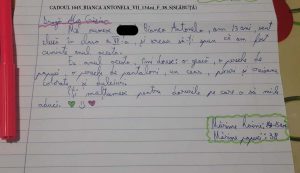 CADOUL 1045_BIANCA ANTONELA_VII_13ani_F_38_SISEȘTI(Ț)
Dragă Moș Crăciun
Mă numesc Bianca Antonela, am 13 ani, sunt
elevă în clasa a VII-a, și vreau să-ți spun că am fost
cuminte anul acesta.
În anul acesta, îmi doresc: o geacă, o pereche de
papuci, o pereche de pantaloni, un ceas, și
colorate, și dulciuri.
Îți mulțumesc pentru darurile pe care o să mi le
aduci.
Mărime haine:
Mărime papuci: 38